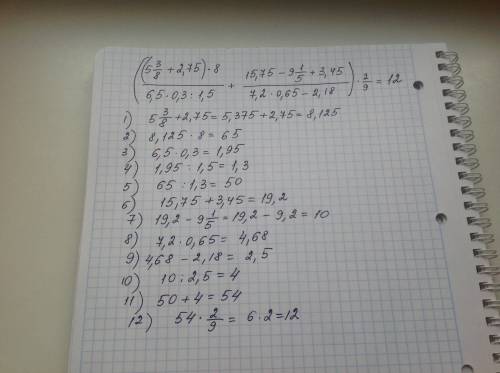 ((5 3/8 + 2,75) · 8 / 6,5 · 0,3 : 1,5 + 15,75 - 9 1/5 + 3,45 / 7,2 · 0,65 - 2,18) · 2/9 = 12
1) 5 3/8 + 2,75 = 5,375 + 2,75 = 8,125
2) 8,125 · 8 = 65
3) 6,5 · 0,3 = 1,95
4) 1,95 : 1,5 = 1,3
5) 65 : 1,3 = 50
6) 15,75 + 3,45 = 19,2
7) 19,2 - 9 1/5 = 19,2 - 9,2 = 10
8) 7,2 · 0,65 = 4,68
9) 4,68 - 2,18 = 2,5
10) 10 : 2,5 = 4
11) 50 + 4 = 54
12) 54 · 2/9 = 6 · 2 = 12